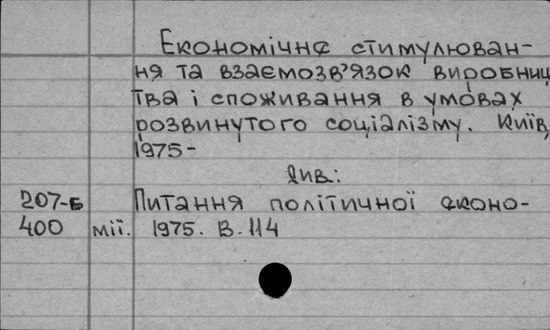 Економічне стимулюван-
ня та взаємозв'язок виробниц
тва і споживання в умовах
розвинутого соціалізму. Київ,
1975-
Див:
207-Б Питання політичної еконо-
400 мії. 1975. В. 114